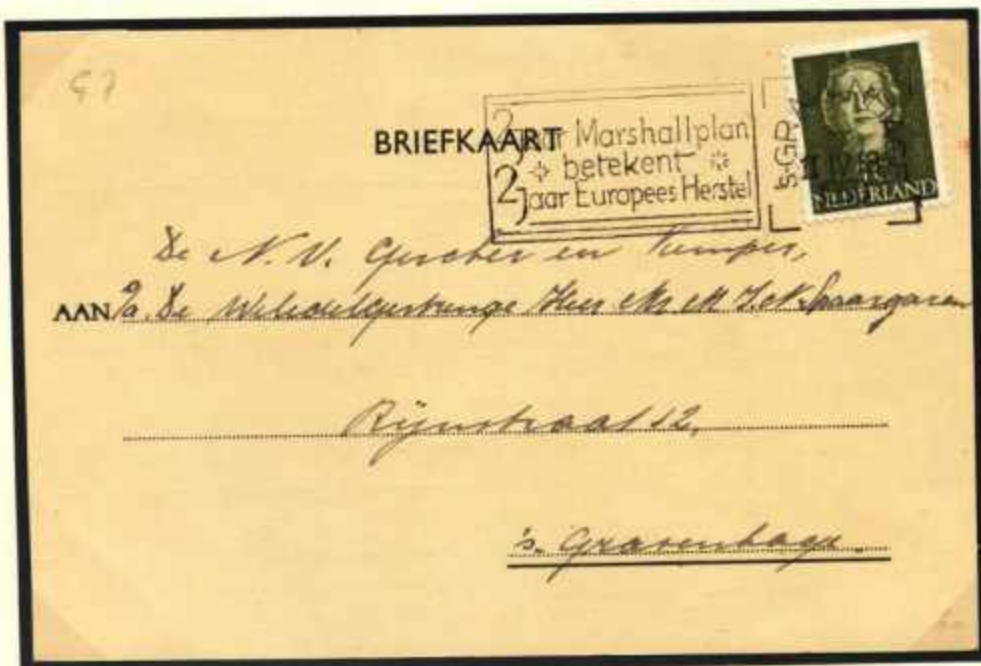 97
BRIEFKAART
2 jaar Marshallplan
betekent
2 jaar Europees Herstel
'S-GRA
NEDERLAND
De N.V. en
AAN P/a. De Weledelgestrenge Heer Mr. M. I. K. Spaargaren
Rijnstraat 12,
's-Gravenhage.